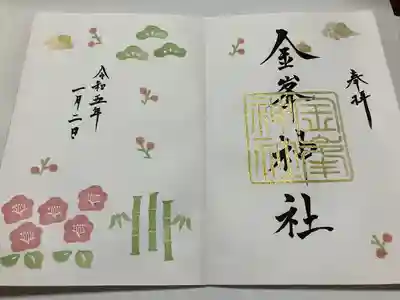 奉拝
金峯神社
金峯神社
令和五年
一月二日